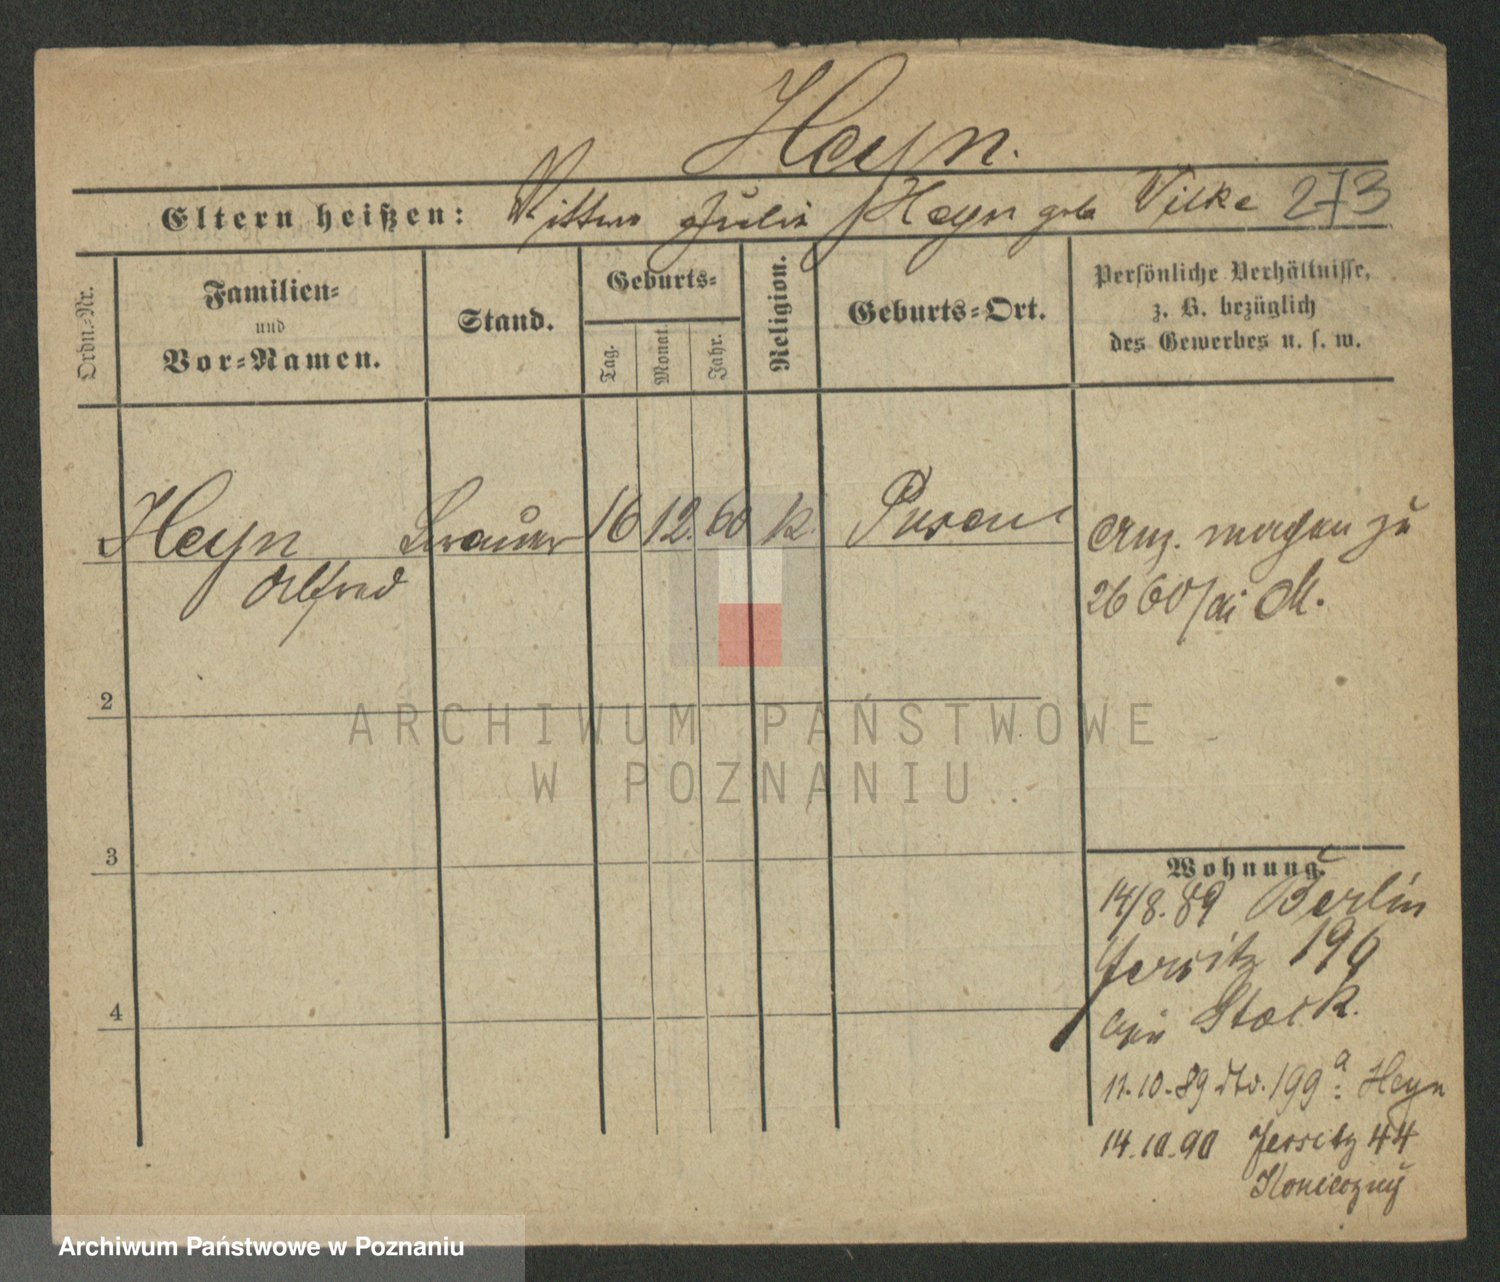 Heyn.
Eltern heißen: Julia Heyn geb. Vilke 273
Ordn.-Nr.
Familien-
und
Vor-Namen.
Stand.
Geburts-
Tag.
Monat.
Jahr.
Religion.
Geburts-Ort.
Persönliche Verhältnisse,
z. B. bezüglich
des Gewerbes u. s. w.
Heyn Brauer 16 12. 60 k. Posen
Alfred
zu
2660 M.
2
3
4
Wohnung.
14/8. 89 Berlin
Jersitz 196
Stock.
11.10.89 dto. 199a: Heyn
14.10.90 Jersitz 44
Konieczny
ARCHIWUM PAŃSTWOWE
W POZNANIU
Archiwum Państwowe w Poznaniu